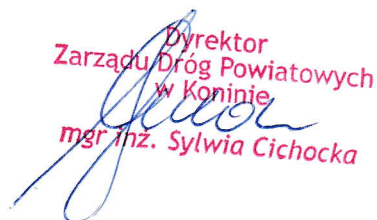 Dyrektor
Zarządu Dróg Powiatowych
w Koninie
mgr inż. Sylwia Cichocka